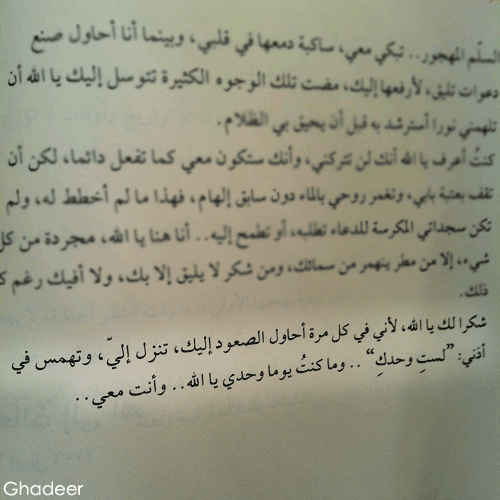 السلّم المهجور.. تبكي معي، ساكبة دمعها في قلبي، وبينما أنا أحاول صنع
دعوات تليق، لأرفعها إليك، مضت تلك الوجوه الكثيرة تتوسل إليك يا الله أن
تلهمني نورا أسترشد به قبل أن يحيق بي الظلام.
كنتُ أعرف يا الله أنك لن تتركني، وأنك ستكون معي كما تفعل دائما، لكن أن
تقف بعتبة بابي، وتغمر روحي بالماء دون سابق إلهام، فهذا ما لم أخطط له، ولم
تكن سجداتي المكرسة للدعاء تطلبه، أو تطمح إليه.. أنا هنا يا الله، مجردة من كل
شيء، إلا من مطر ينهمر من سمائك، ومن شكر لا يليق إلا بك، ولا أفيك رغم
ذلك.
شكرا لك يا الله، لأني في كل مرة أحاول الصعود إليك، تنزل إليّ، وتهمس في
أذني: ”لستِ وحدكِ“ .. وما كنتُ يوما وحدي يا الله.. وأنت معي..
Ghadeer